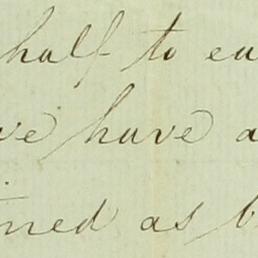 half to ea
we have a
ned as b